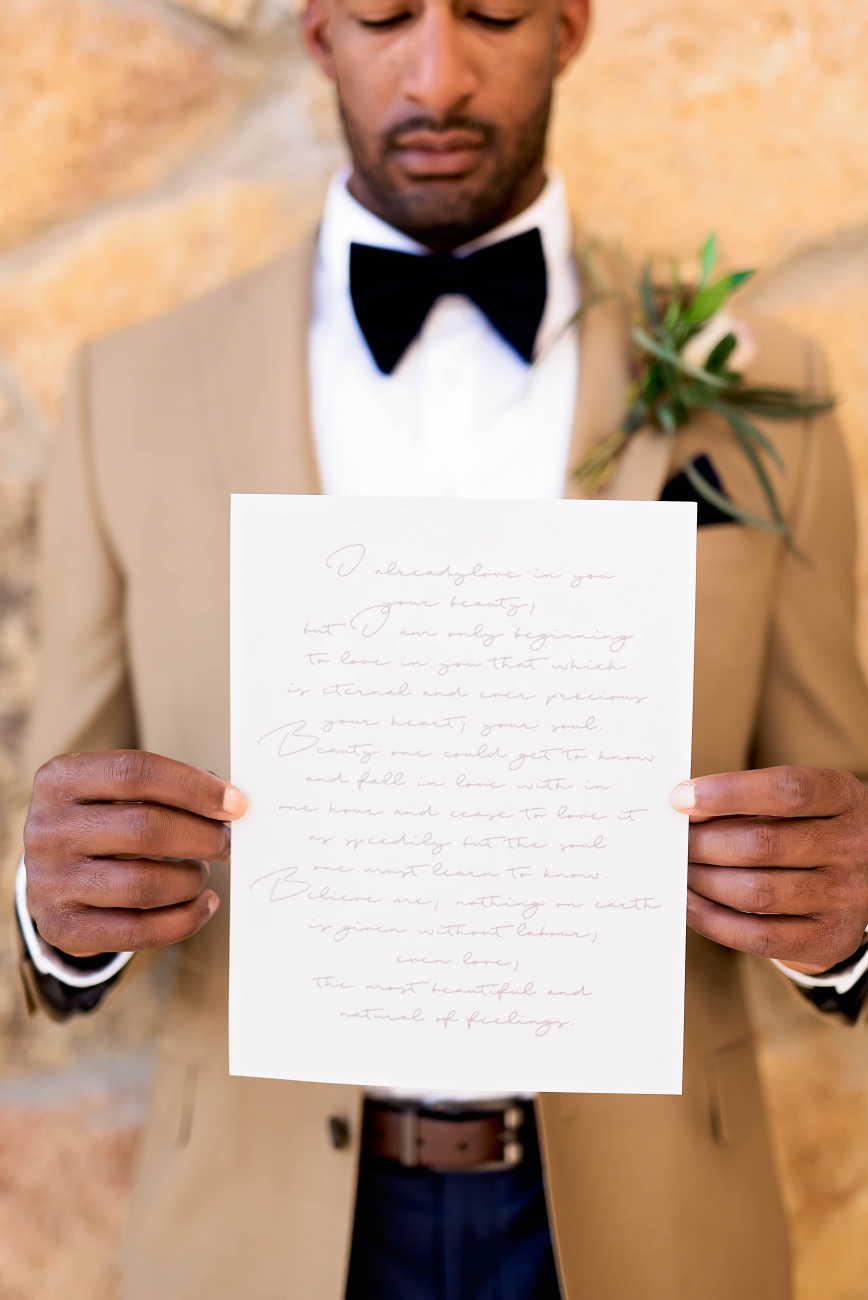 I alreadylove in you
your beauty,
but I am only beginning
to love in you that which
is eternal and ever precious
your heart, your soul.
Beauty one could get to know
and fall in love with in
one hour and cease to love it
as speedily but the soul
one must learn to know.
Believe me, nothing on earth
is given without labour,
even love,
the most beautiful and
natural of feelings.